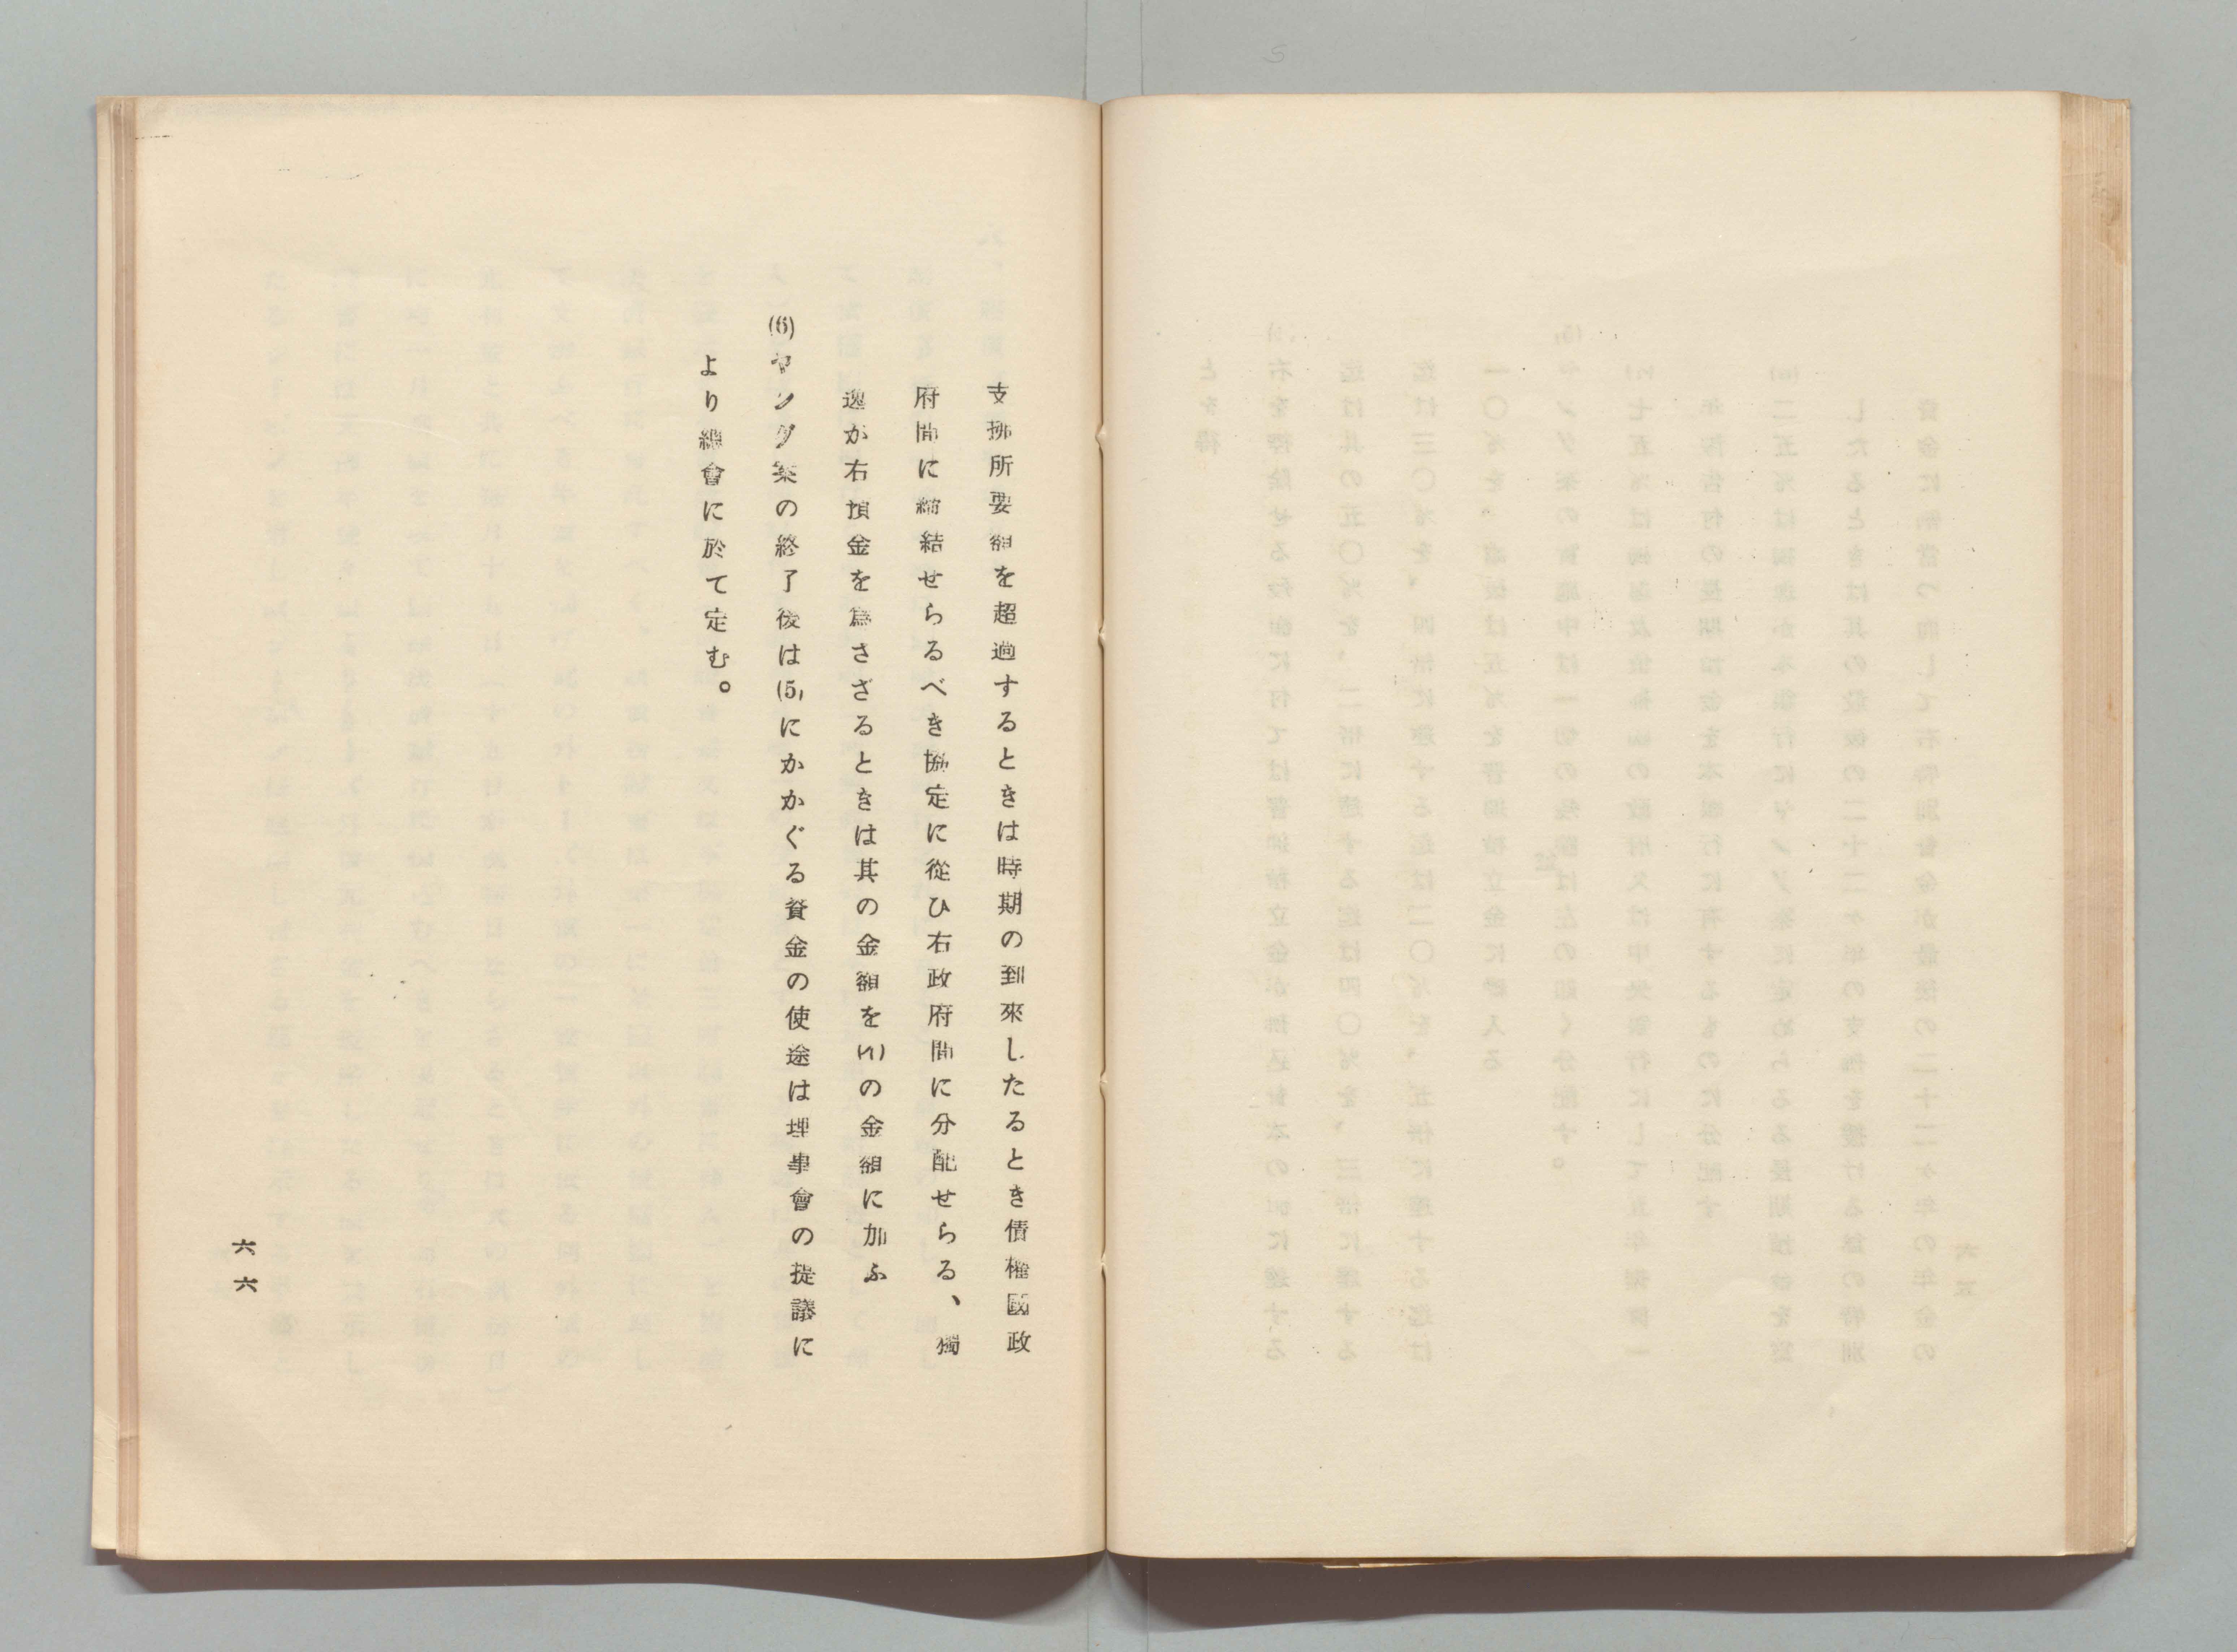 支拂所要額を超過するときは時期の到來したるとき債權國政
府間に締結せらるべき協定に從ひ右政府間に分配せらる、獨
逸が右預金を爲さざるときは其の金額を(イ)の金額に加ふ
(6)ヤング案の終了後は(5)にかかぐる資金の使途は理事會の提議に
より總會に於て定む。
六六